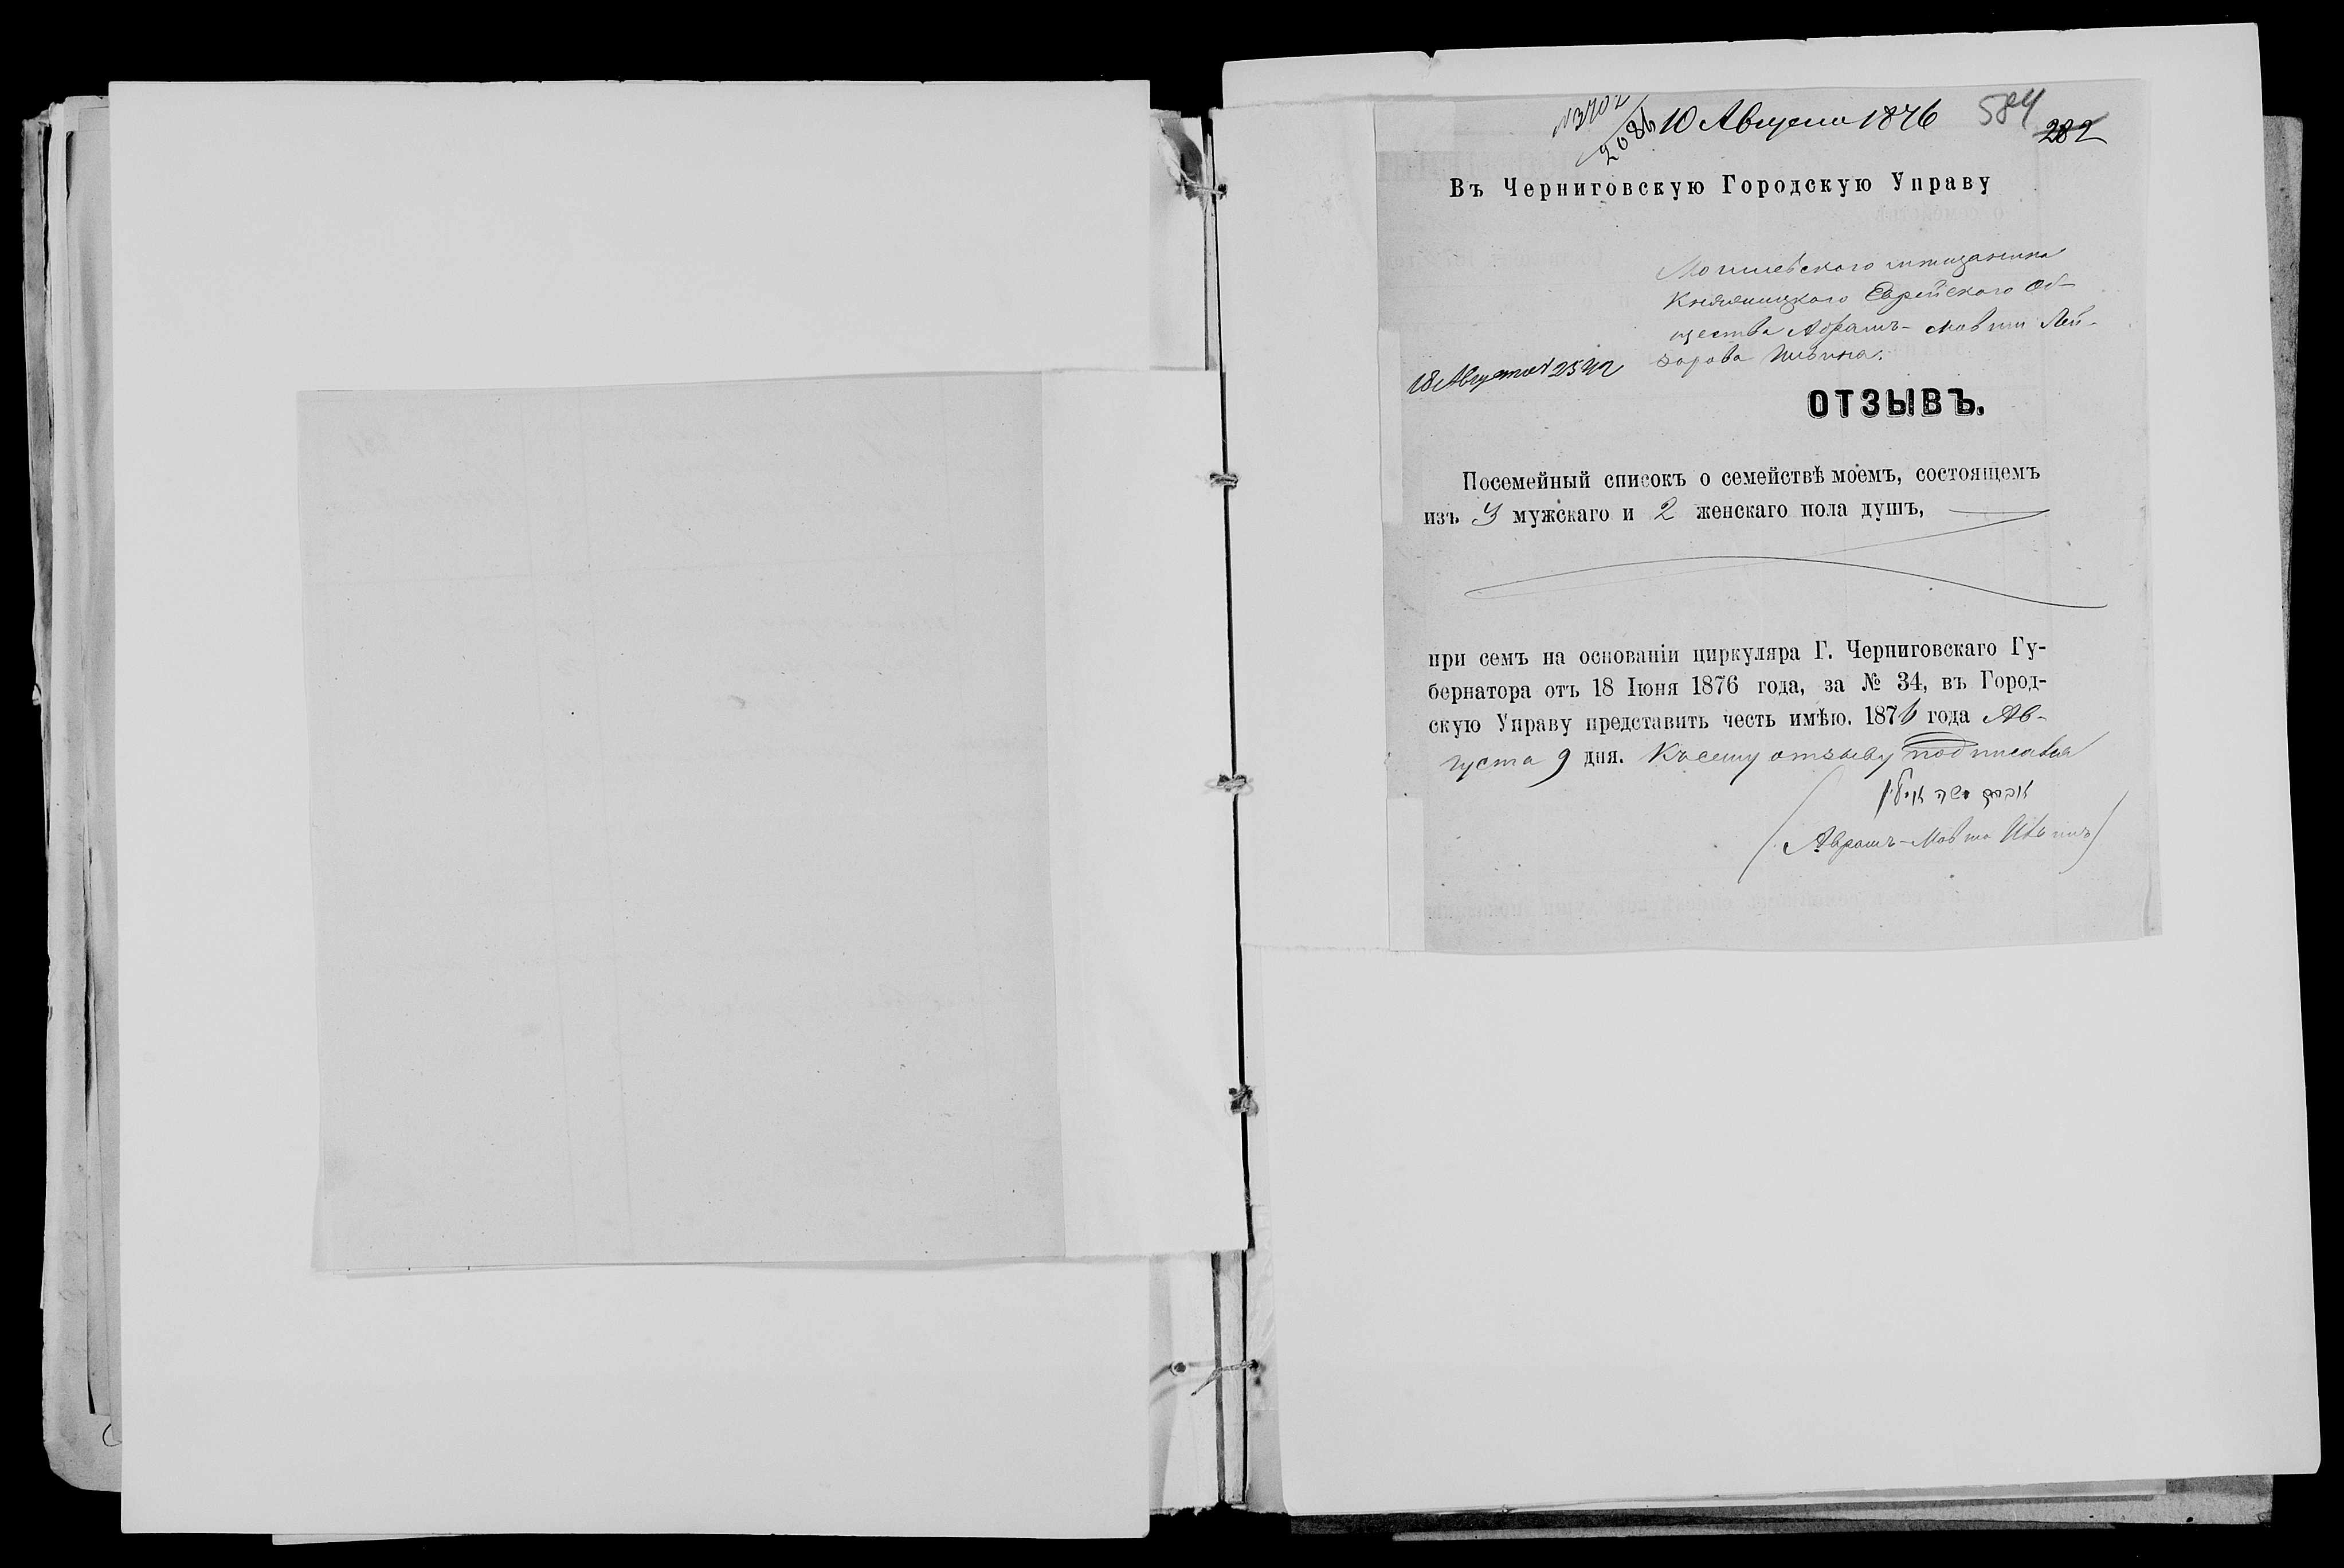 № 3702
2086
10 Августа 1876
584
282
Въ Черниговскую Городскую Управу
Могилевского мещанина
Княжицкого Еврейского Об-
щества Абрамъ-Мовши Лей-
зорова Ильина.
18 Августа 2542
ОТЗЫВЪ.
Посемейный списокъ о семействѣ моемъ, состоящемъ
изъ 3 мужскаго и 2 женскаго пола душъ,
при семъ на основаніи циркуляра Г. Черниговскаго Гу-
бернатора отъ 18 Іюня 1876 года, за № 34, въ Город-
скую Управу представить честь имѣю. 1876 года Ав-
густа 9 дня. Къ сему отзыву подписался
אברהם משה אילין
(Абрамъ-Мовша Ильинъ)